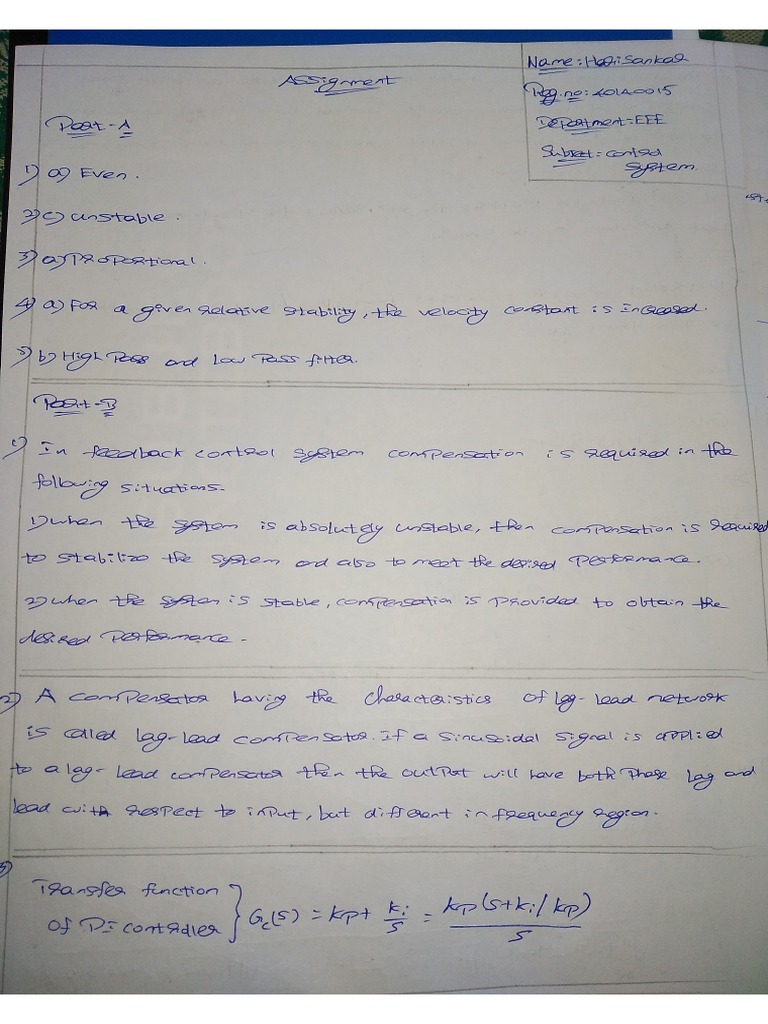 Assignment
Name: HariSankar
Reg.no: 401A0015
Department: EEE
Subject: control
System.
Part-A
1) a) Even.
2) c) unstable.
3) a) Proportional.
4) a) For a given relative stability, the velocity constant is increased.
5) b) High Pass and Low Pass filter.
Part-B
1) In feedback control system compensation is required in the
following situations.
1) when the system is absolutely unstable, then compensation is required
to stabilize the system and also to meet the desired performance.
2) when the system is stable, compensation is provided to obtain the
desired performance.
2) A compensator having the characteristics of lag-lead network
is called lag-lead compensator. If a sinusoidal signal is applied
to a lag-lead compensator then the output will have both phase lag and
lead with respect to input, but different in frequency region.
Transfer function
of PI controller } Gc(s) = kp + ki/s = kp(s+ki/kp)/s